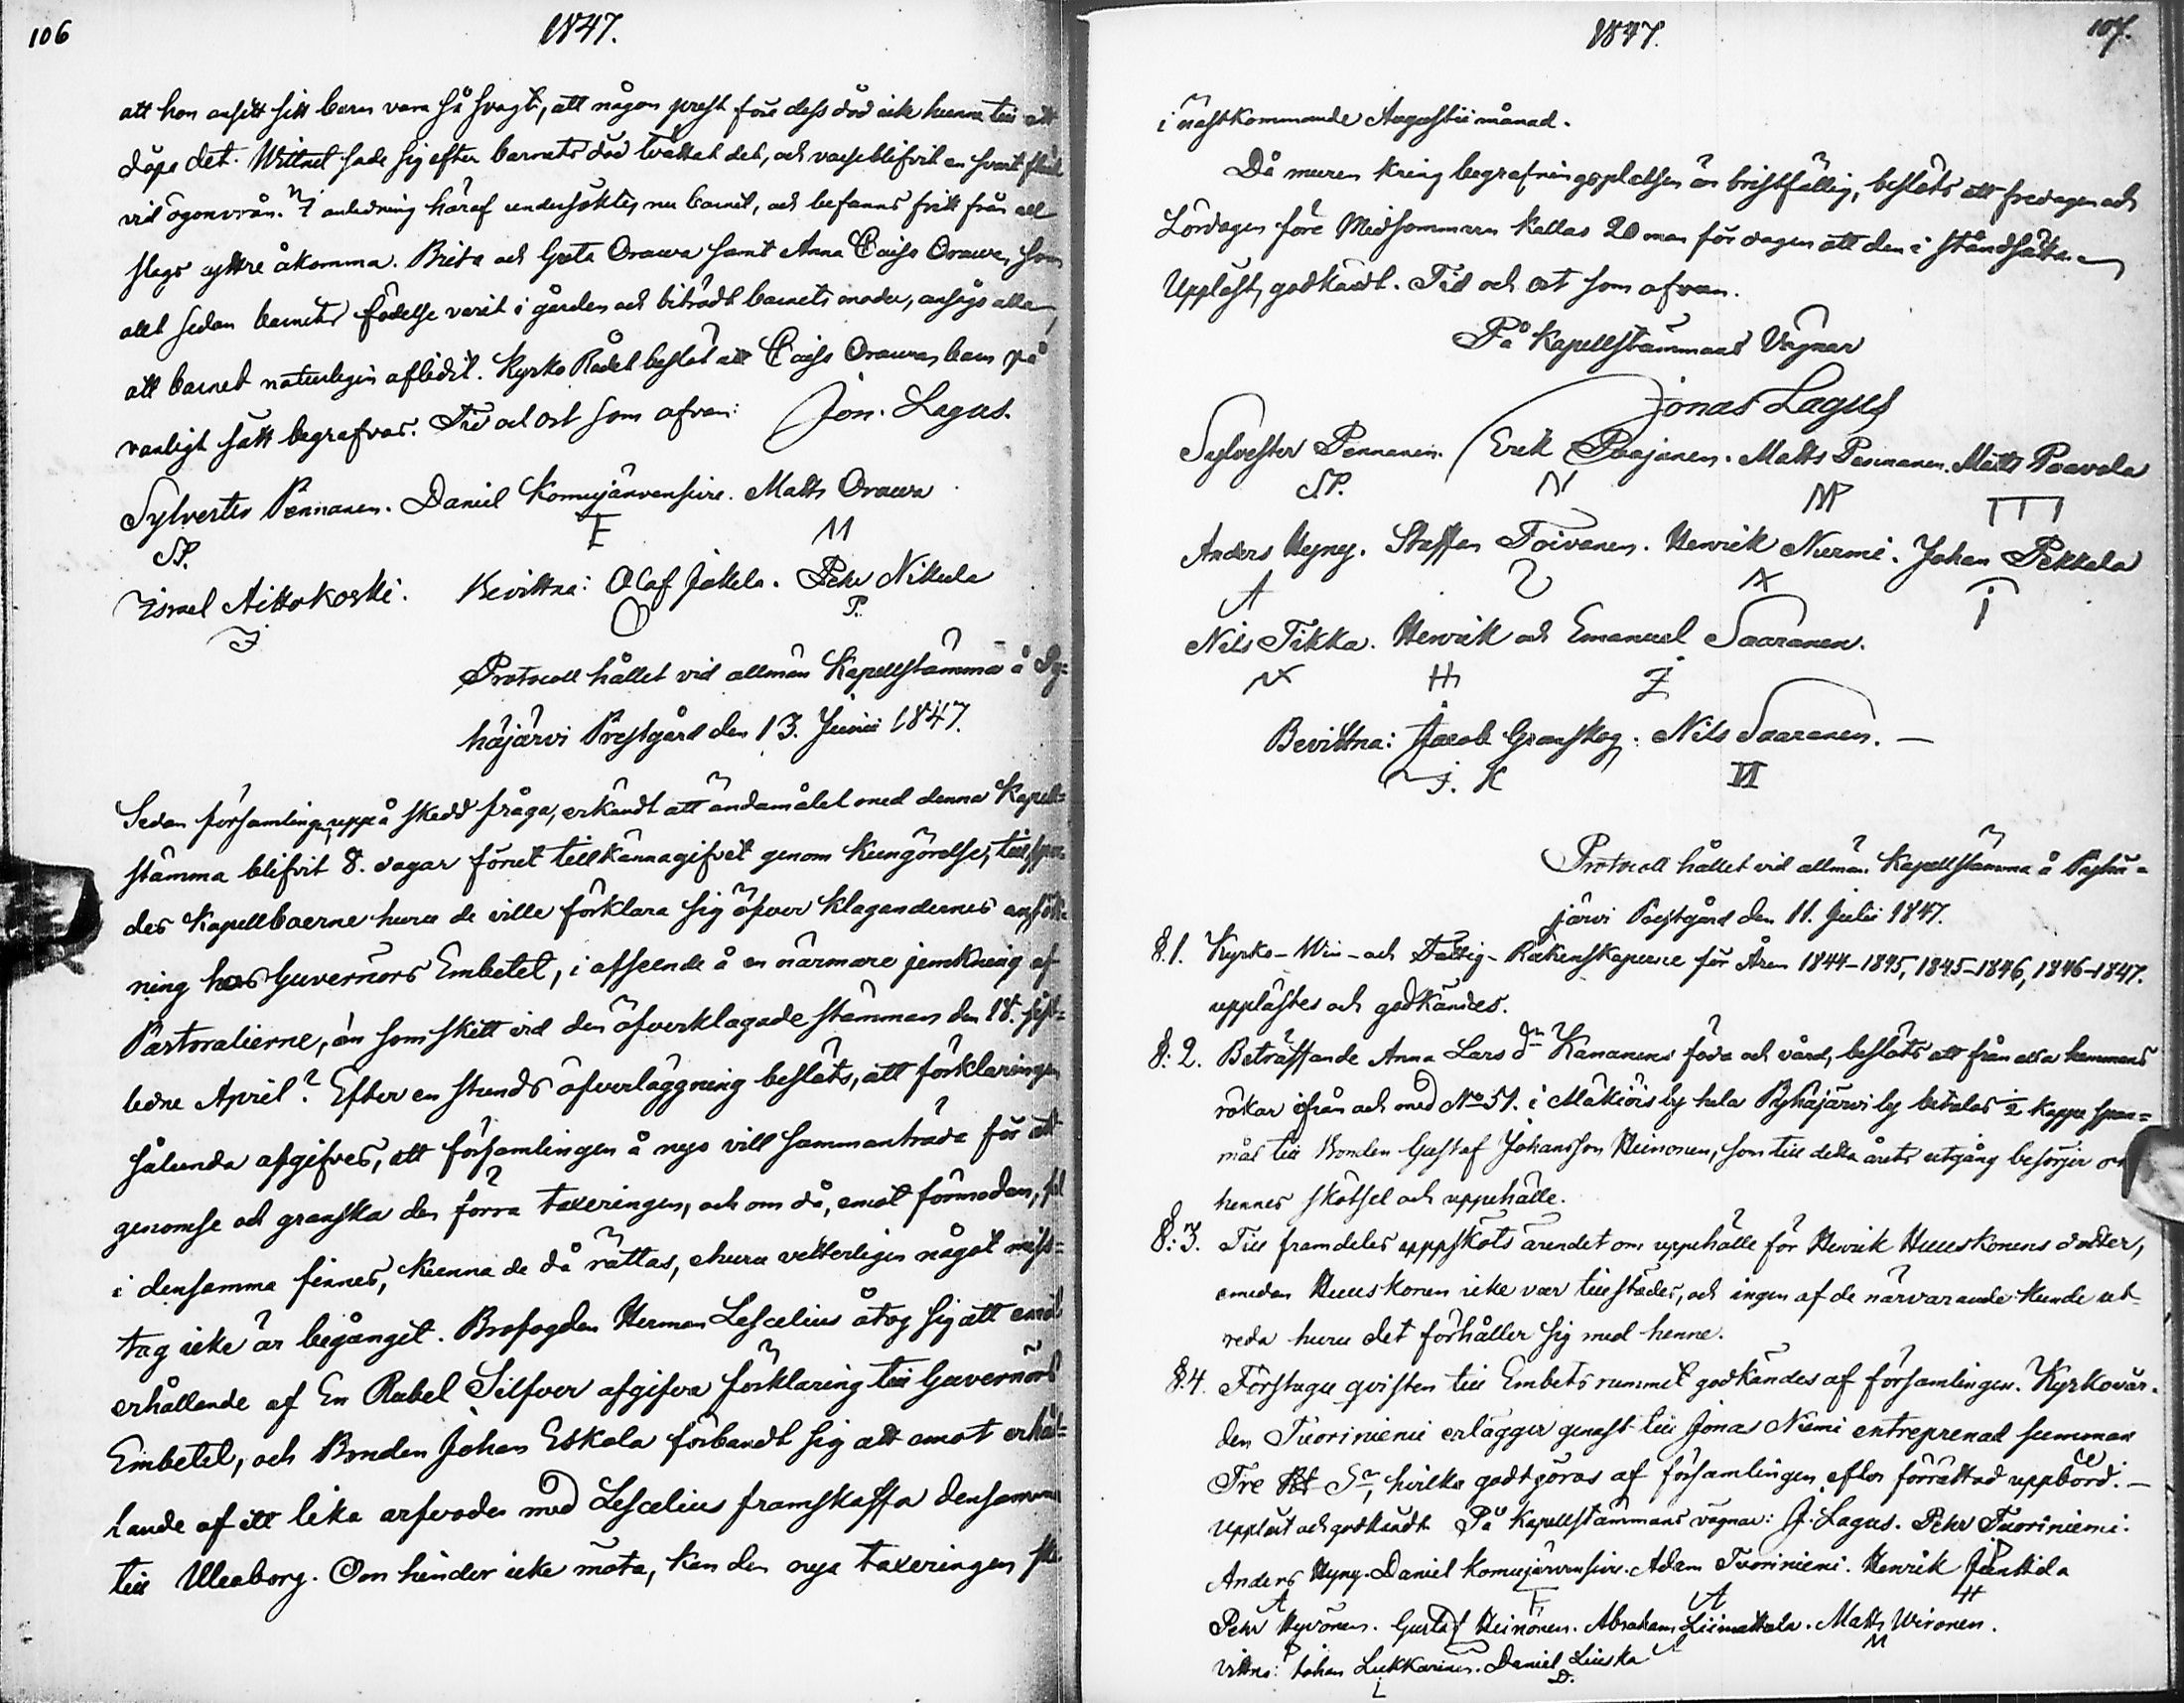 106
1847.
att hon ansett sitt barn vara så svagt, att någon prest före dess död icke hunne till att
döpa det. Wittnet sade sig efter barnets död tvättat det, och varseblifvit en svart fläck
vid ögonvrån. I anledning häraf undersöktes nu barnet, och befanns fritt från all
slags yttre åkomma. Brita och Greta Orawa samt Anna Caisa Orawa, som
allt sedan barnets födelse varit i gården och biträdt barnets moder, ansågo alla,
att barnet naturligen aflidit. Kyrko Rådet beslöt att Caisa Orawas barn på
vanligt sätt begrafvas. Tid och ort som ofvan: Jon. Lagus.
Sylvester Pennanen. Daniel Komujärvensivu. Matts Orawa
SP. E M
Israel Aittokoski. Bevittna: Olaf Jokela. Pehr Nikula
I O P.
Protocoll hållet vid allmän Kapellstämma å Py-
häjärvi Prestgård den 13. Junii 1847.
Sedan församlingen, uppå skedd fråga, erkändt att ändamålet med denna Kapell-
stämma blifvit 8. dagar förut tillkännagifvet genom kungörelse, tillspor-
des Kapellboerne huru de ville förklara sig öfver klagandernes ansök-
ning hos Guvernörs Embetet, i afseende å en närmare jemkning af
Pastoralierne, än som skett vid den öfverklagade stämman den 18. sist-
ledne April? Efter en stunds öfverläggning beslöts, att förklaringen
sålunda afgifves, att församlingen å nyo vill sammanträda för att
genomse och granska den förra taxeringen, och om då, emot förmodan, fel
i densamma finnes, kunna de då rättas, ehuru vetterligen något miss-
tag icke är begånget. Brofogden Herman Lescelius åtog sig att emot
erhållande af En Rubel Silfver afgifva förklaring till Guvernörs
Embetet, och Bonden Johan Eskola förbandt sig att emot erhål-
lande af ett lika arfvode med Lescelius framskaffa densamma
till Uleaborg. Om hinder icke möta, kan den nya taxeringen ske
1847.
107.
i nästkommande Augustii månad.
Då muren kring begrafningsplatsen är bristfällig, beslöts att fredagen och
Lördagen före Midsommaren kallas 20 man för dagen att den i ståndsätta.
Uppläst, godkändt. Tid och ort som ofvan.
På Kapellstämmans Vägnar
Jonas Lagus
Sylvester Pennanen. Erik Paajanen. Matts Pasmanen. Matts Paavola
SP. N MP
Anders Hyny. Staffan Toivanen. Henrik Nurmi. Johan Pekkala
A
Nils Tikka. Henrik och Emanuel Saaranen.
H
Bevittna: Jacob Granskog. Nils Saaranen. —
J. K N
Protocoll hållet vid allmän Kapellstämma å Pyhä-
järvi Prestgård den 11. Julii 1847.
§. 1. Kyrko- Win- och Fattig- Räkenskaperne för Åren 1844–1845, 1845–1846, 1846–1847.
upplästes och godkändes.
§: 2. Beträffande Anna Lars dr Kananens föda och vård, beslöts att från alla hemmans
rökar ifrån och med No 51. i Mäkiöis by hela Pyhäjärvi by betalas ½ kappe span-
mål till Bonden Gustaf Johansson Heinonen, som till detta årets utgång besörjer om
hennes skötsel och uppehälle.
§: 3. Till framdeles uppsköts ärendet om uppehälle för Henrik Huuskonens dotter,
emedan Huuskonen icke var tillstädes, och ingen af de närvarande kunde ut-
reda huru det förhåller sig med henne.
§. 4. Förstugu qvisten till Embets rummet godkändes af församlingen. Kyrkovär-
den Tuoriniemi erlägger genast till Jonas Niemi entreprenad summan
Tre Sr, hvilka godtgöras af församlingen efter förrättad uppbörd. —
Uppläst och godkändt. På Kapellstämmans vägnar: J. Lagus. Pehr Tuoriniemi.
Anders Hyny. Daniel Komujärvensivu. Adam Tuoriniemi. Henrik Jänttilä
A E A H
Pehr Hyvönen. Gustaf Heinonen. Abraham Liimattala. Matts Wironen.
P M
Vittna: Johan Lukkarinen. Daniel Liuska
D.